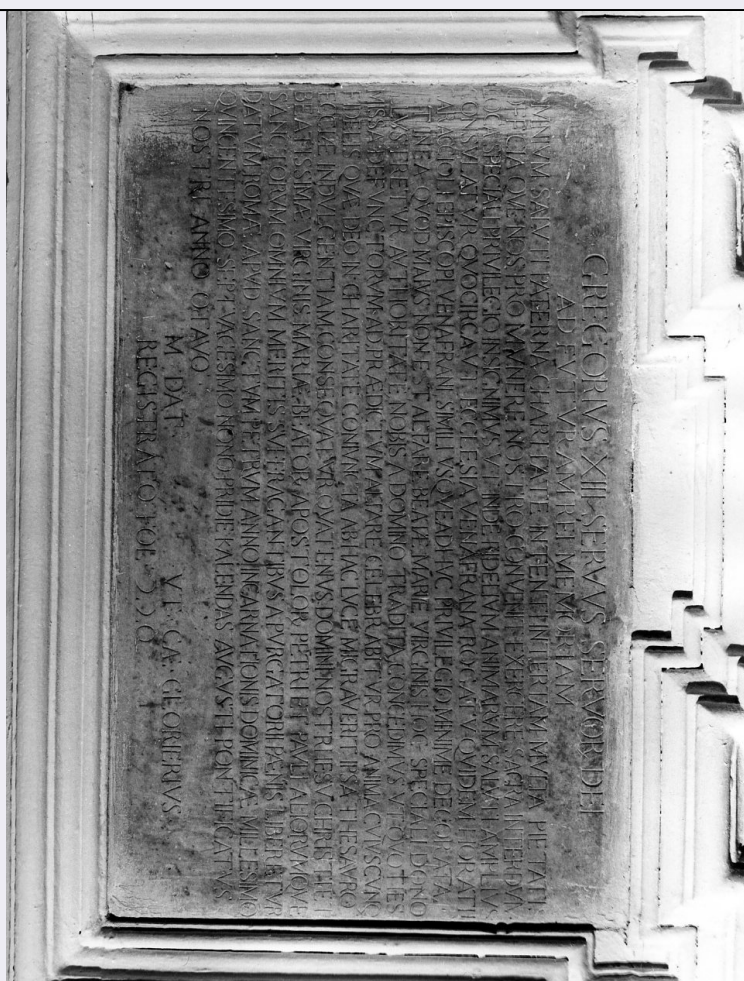 GREGORIVS XIII SERVVS SERVOR DEI
AD FVTVRAM REI MEMORIAM
OMNIVM SALVTI PATERNA CHARITATE INTENTI INTERTAM MVLTA PIETATIS
OFFICIA QVE NOS PRO MVNERE NOSTRO CONVENIT EXERCERE SACRA INTERDVM
LOCA SPECIALI PRIVILEGIO INSIGNIMVS VT INDE FIDELIVM ANIMARVM SALVTI AMPLIVS
CONSVLATVR QVOCIRCA VT ECCLESIA VENAFRANA ROGATV QVIDEM HORATII
EPISCOPI VENAFRANI SIMILI VSQVE AD HAC PRIVILEGIO MINIME DECORATA
ET IN EA QVOD MAIVS NON EST ALTARE BEATE MARIE VIRGINIS HOC SPECIALI DONO
AVTHORITATE NOBIS A DOMINO TRADITA CONCEDIMVS VT QVOTIES
MISSA DEFVNCTORVM AD PRÆDICTVM ALTARE CELEBRABITVR PRO ANIMA CVIVSCVNQ
FIDELIS QVÆ DEO IN CHARITATE CONIVNCTA AB HAC LVCE MIGRAVERIT IPSA THESAVRO
ECCLE INDVLGENTIAM CONSEQVATVR QVATENVS DOMINI NOSTRI IESV CHRISTI ET
BEATISSIMÆ VIRGINIS MARIÆ BEATOR APOSTOLOR PETRI ET PAVLI ALIORVMQVE
SANCTORVM OMNIVM MERITIS SVFFRAGANTIBVS A PVRGATORII PÆNIS LIBERATVR
DATVM ROMÆ APVD SANCTVM PETRVM ANNO INCARNATIONIS DOMINICÆ MILLESIMO
QVINGENTESIMO SEPTVAGESIMO NONO PRIDIE KALENDAS AVGVSTI PONTIFICATVS
NOSTRI ANNO OTAVO
M DAT VE CÆ GLORIERIVS
REGISTRATO FOL